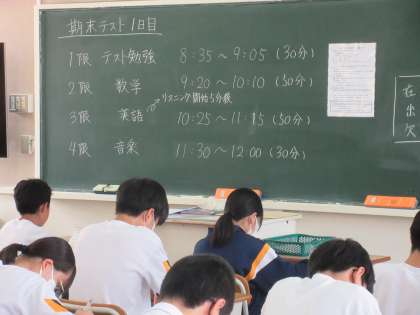 期末テスト1日目
1限 テスト勉強 8:35～9:05(30分)
2限 数学 9:20～10:10(50分)
リスニング開始5分後
3限 英語 10:25～11:15(50分)
4限 音楽 11:30～12:00(30分)
在
出
欠